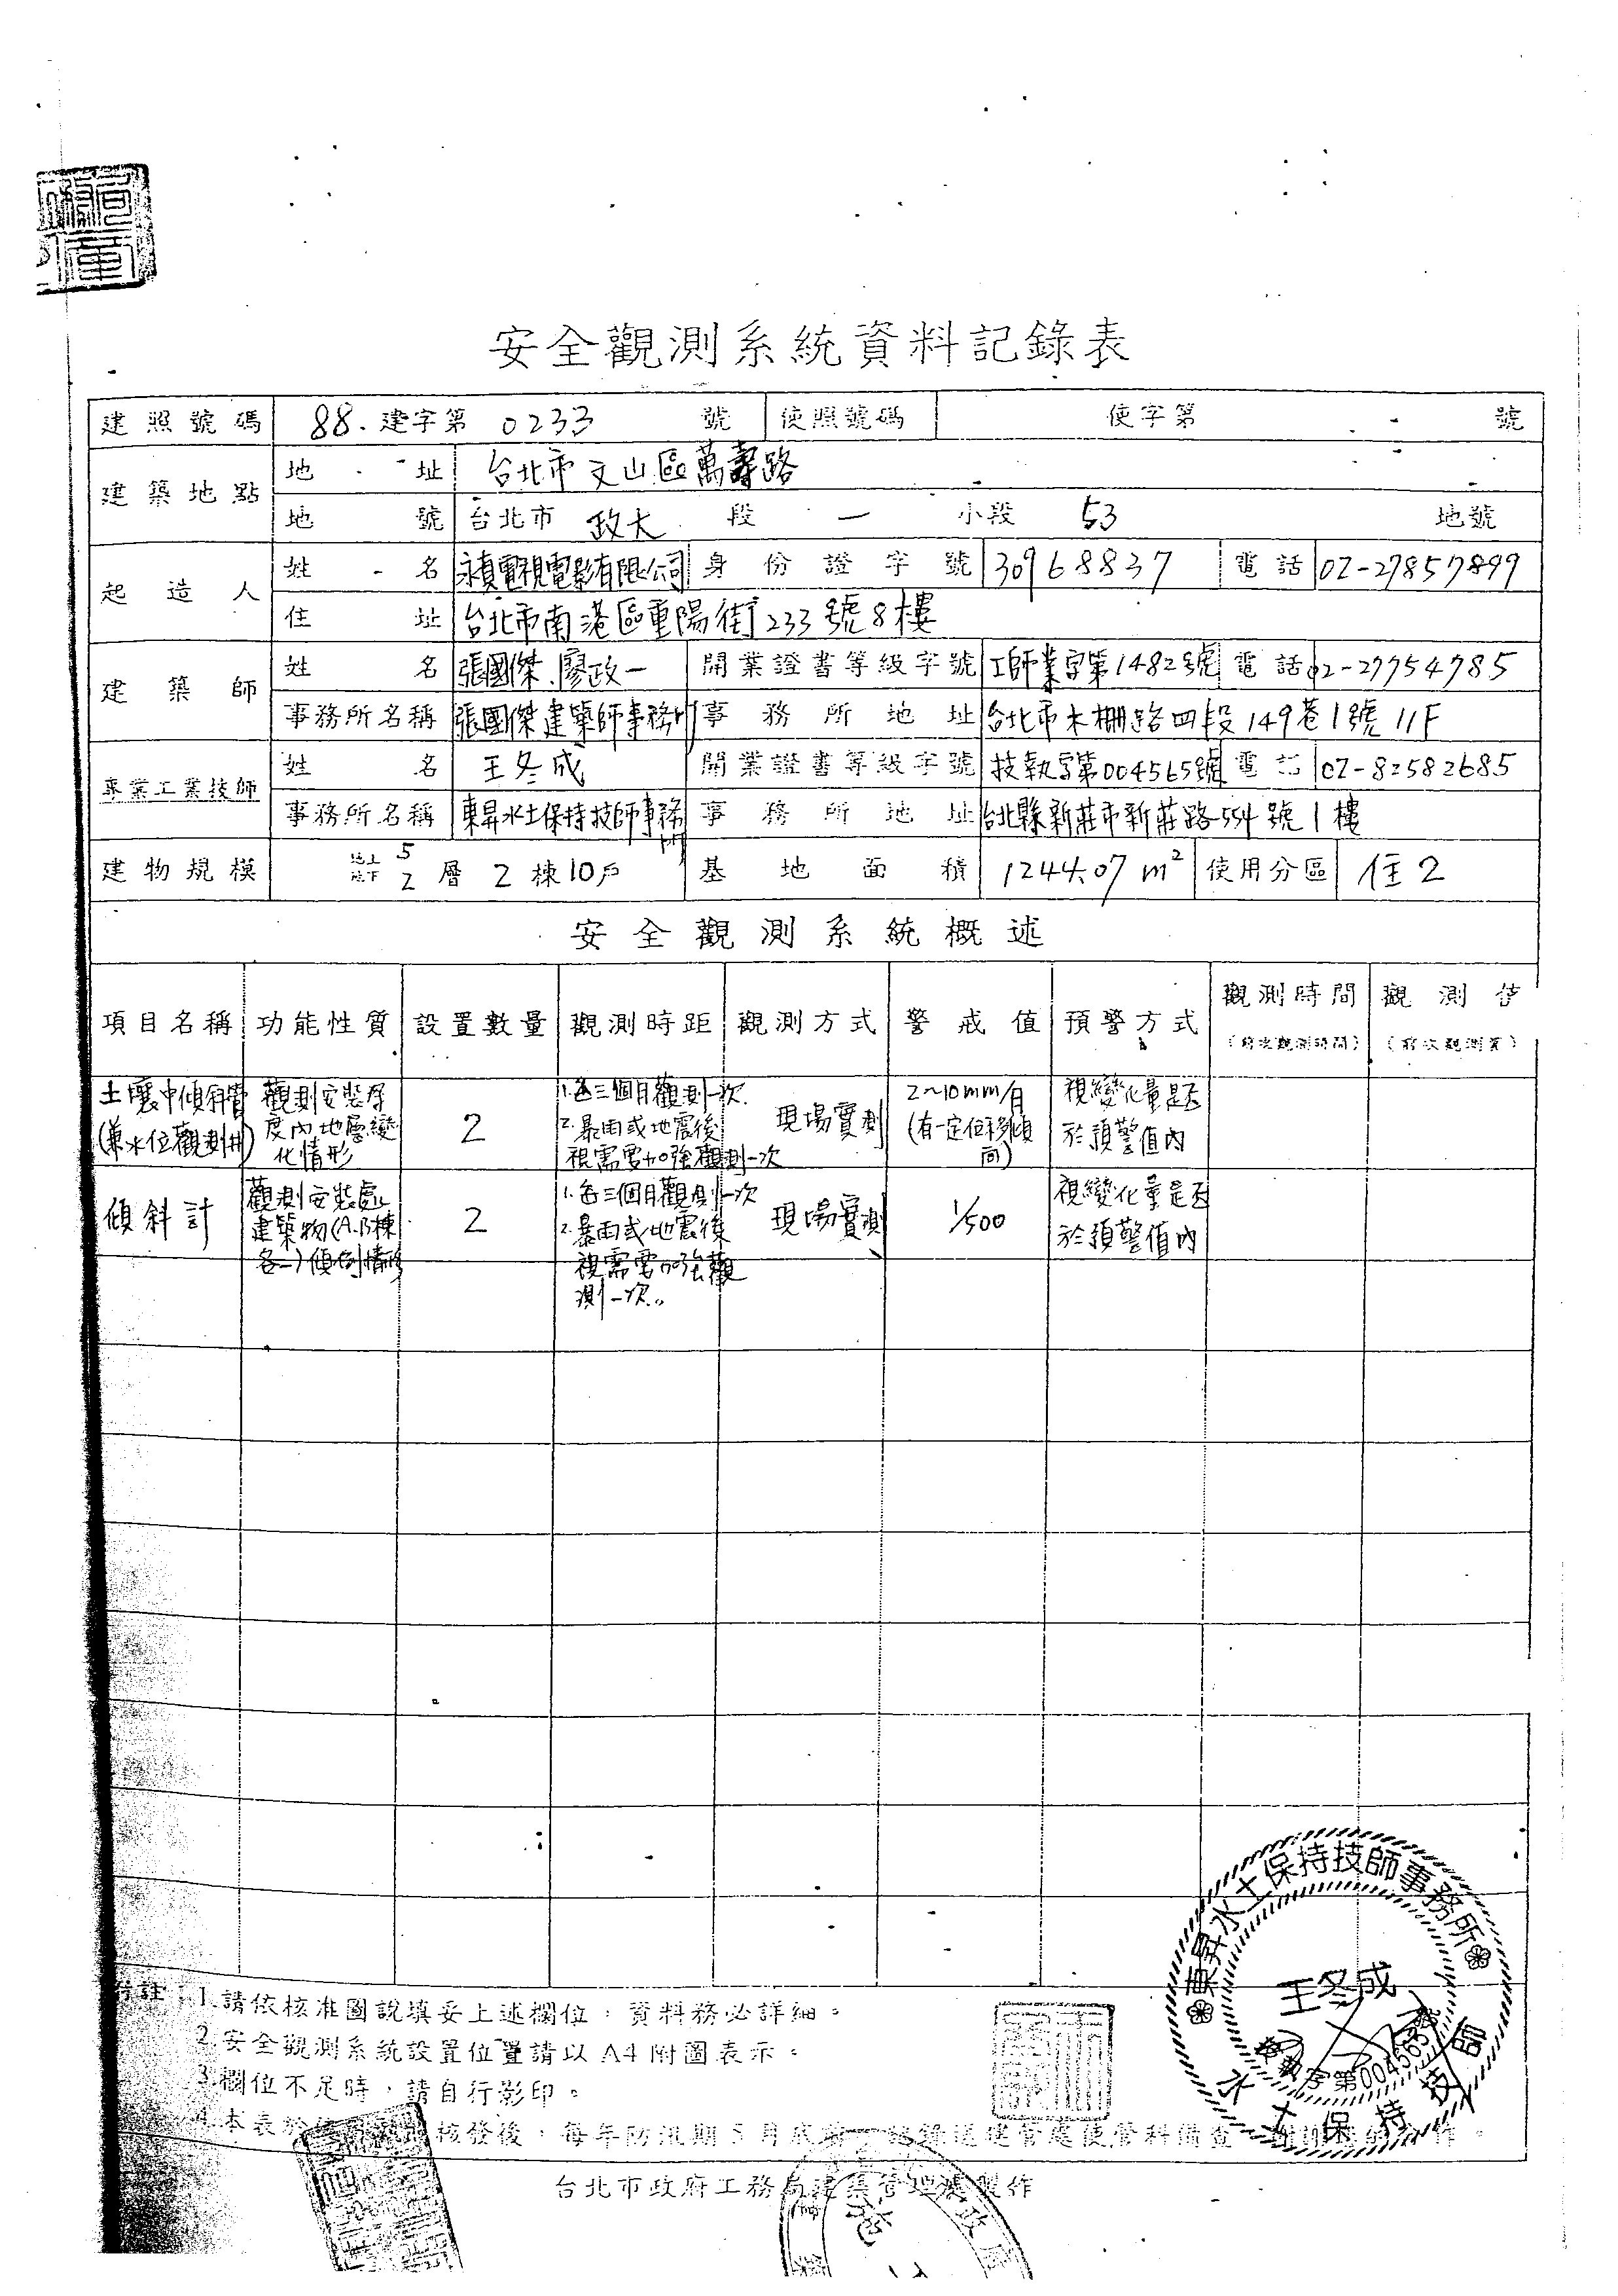 安全觀測系統資料記錄表
建照號碼 88.建字第 0233 號 使照號碼 使字第 號
建築地點 地址 台北市文山區萬壽路
地號 台北市 政大 段 一 小段 53 地號
起造人 姓名 永真電視電影有限公司 身份證字號 30968837 電話 02-27857899
住址 台北市南港區重陽街233號8樓
建築師 姓名 張國傑.廖政一 開業證書等級字號 工師業字第1482號 電話 02-27754785
事務所名稱 張國傑建築師事務所 事務所地址 台北市木柵路四段149巷1號11F
專業工業技師 姓名 王冬成 開業證書等級字號 技執字第004565號 電話 02-82582685
事務所名稱 東昇水土保持技師事務所 事務所地址 台北縣新莊市新莊路554號1樓
建物規模 地上5 地下2 層 2棟10戶 基地面積 1244.07 m² 使用分區 住2
安全觀測系統概述
項目名稱 功能性質 設置數量 觀測時距 觀測方式 警戒值 預警方式 觀測時間 觀測值
(前次觀測時間) (前次觀測質)
土壤中傾斜管 觀測安裝深 1.每三個月觀測一次. 2~10mm/月 視變化量是否
(兼水位觀測井) 度內地層變 2 2.暴雨或地震後 現場實測 (有一定位移傾 於預警值內
化情形 視需要加強觀測一次 向)
傾斜計 觀測安裝處 2 1.每三個月觀測一次 現場實測 1/500 視變化量是否
建築物(A.B棟 2.暴雨或地震後 於預警值內
各一)傾倒情形 視需要加強觀
測一次。
附註:1.請依核准圖說填妥上述欄位,資料務必詳細。
2.安全觀測系統設置位置請以A4附圖表示。
3.欄位不足時,請自行影印。
4.本表於 核發後,每年防汛期5月底
台北市政府工務局建築管理處製作
東昇水土保持技師事務所
王冬成
執業字第004565號
水土保持技師